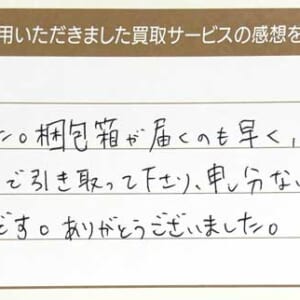 用いただきました買取サービスの感想を
た。梱包箱が届くのも早く、
で引き取って下さり、申し分ない
です。ありがとうございました。